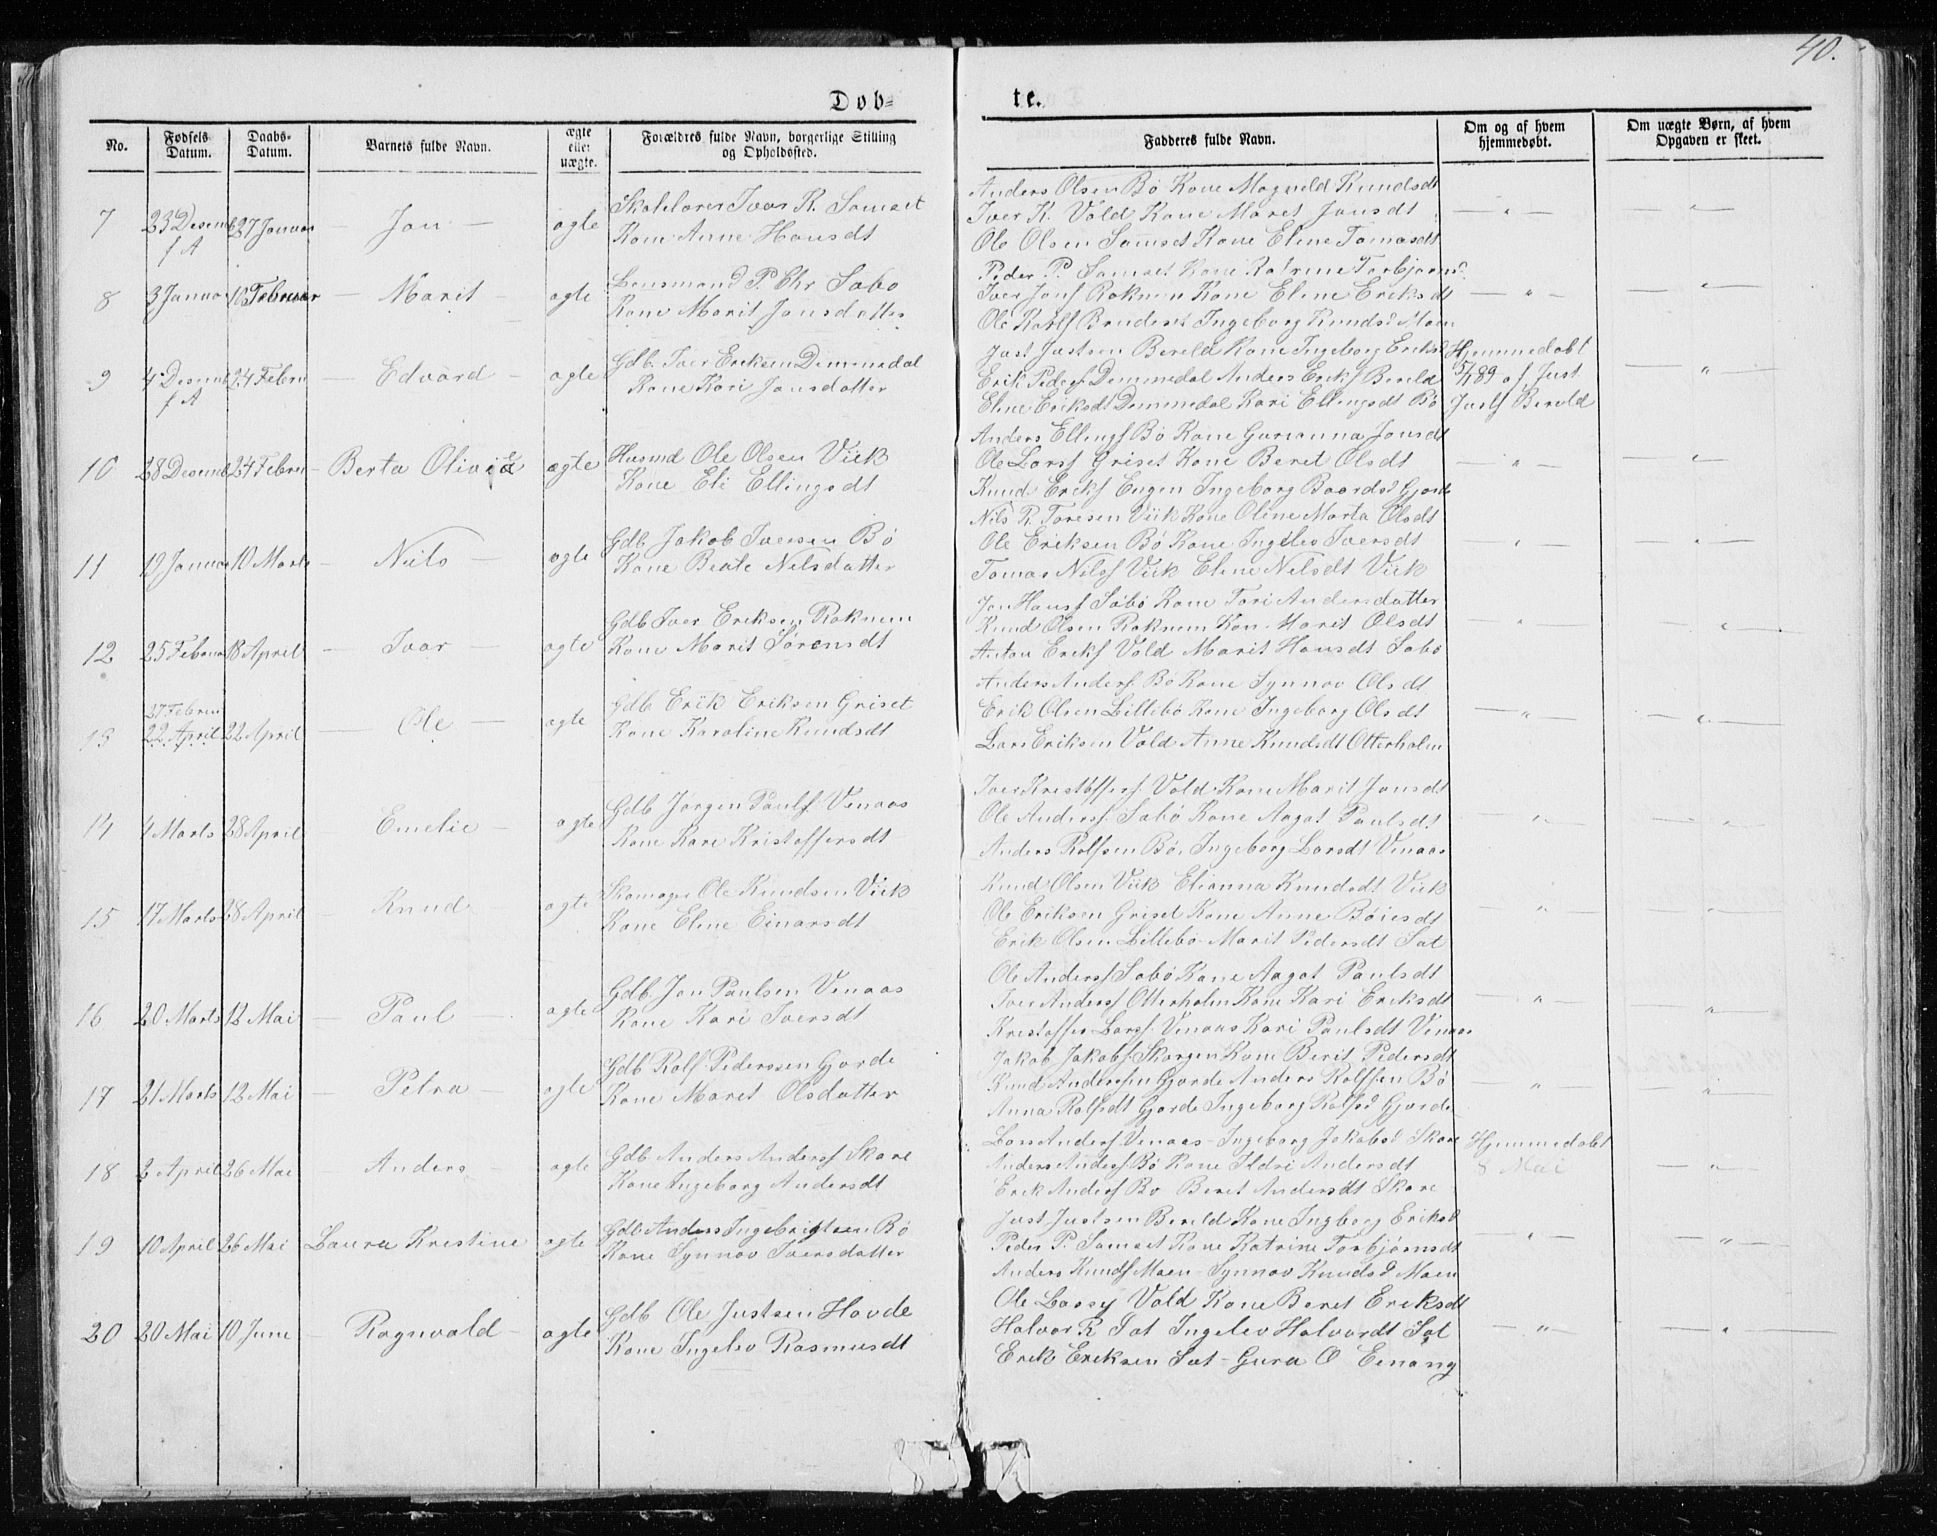 40.
Døbte.
No.
Fødsels Datum.
Daabs-Datum.
Barnets fulde Navn.
ægte eller uægte.
Forældres fulde Navn, borgerlige Stilling og Opholdssted.
Fadderes fulde Navn.
Om og af hvem hjemmedøbt.
Om uægte Børn, af hvem Opgaven er skeet.
7 23 Desemb f A 27 Januar Jon ægte
Skolelærer Ivar R. Samset
Kone Anne Hansdt
Anders Olsen Bø Kone Magnild Knudsdt
Iver K. Vold Kone Maret Jonsdt
Ole Olsen Samset Kone Eline Tomasdt
8 3 Januar 10 Februar Marit ægte
Lensmand P. Chr Sæbø
Kone Marit Jonsdatter
Peder P. Samset Kone Katrine Torbjørns
Iver Jonf Roknem Kone Eline Eriksdt
Ole Rolf Bruderet Ingeborg Knuds Moen
9 4 Desemb f A 24 Febru Edvard ægte
Gdb. Iver Eriksen Demmedal
Kone Kari Jonsdatter
Just Justsen Bereld Kone Ingeborg Eriksd
Erik Peders Demmedal Anders Erikf Bereld
Eline Eriksdt Demmedal Kari Ellingsdt Bø
Hjemmedøbt
5/1 89 af Just
Justf Bereld
10 28 Desemb 24 Febru Berta Olivia ægte
Husmd Ole Olsen Viik
Kone Eli Ellingsdt
Anders Ellingf Bø Kone Gurianna Jonsdt
Ole Larsf Griset Kone Beret Olsdt
Knud Erikf Engen Ingeborg Baardsd Gjørde
11 19 Januar 10 Marts Nils ægte
Gdb Jakob Iversen Bø
Kone Beate Nilsdatter
Nils R. Toresen Viik Kone Oline Marta Olsdt
Ole Eriksen Bø Kone Ingelev Iversdt
Tomas Nilsf Viik Eline Nilsdt Viik
12 25 Februar 18 April Ivar ægte
Gdb Iver Eriksen Roknem
Kone Marit Sørensdt
Jon Hansf Sæbø Kone Tori Andersdatter
Knud Olsen Roknem Kone Marit Olsdt
Anton Erikf Vold Marit Hansdt Sæbø
13 27 Februar 22 April 22 April Ole ægte
Gdb Erik Eriksen Griset
Kone Karoline Knudsdt
Anders Andersf Bø Kone Synnøv Olsdt
Erik Olsen Lillebø Kone Ingeborg Olsdt
Lars Eriksen Vold Anne Knudsdt Otterholm
14 4 Marts 28 April Emelie ægte
Gdb Jørgen Paulsf Venaas
Kone Kare Kristoffersdt
Iver Kristoffersf Vold Kone Marit Jonsdt
Ole Andersf Sæbø Kone Aagot Paulsdt
Anders Rolfsen Bø. Ingeborg Larsdt Venaas
15 17 Marts 28 April Knud ægte
Skomager Ole Knudsen Viik
Kone Eline Einarsdt
Knud Olsen Viik Elianna Knudsdt Viik
Ole Eriksen Griset Kone Anne Bøiesdt
Erik Olsen Lillebø Marit Pedersdt Sæt
16 20 Marts 12 Mai Paul ægte
Gdb Jon Paulsen Venaas
Kone Kari Iversdt
Ole Andersf Sæbø Kone Aagot Paulsdt
Iver Andersf Otterholm Kone Kari Eriksdt
Kristoffer Larsf Venaas Kari Paulsdt Venaas
17 21 Marts 12 Mai Petra ægte
Gdb Rolf Pederssen Gjørde
Kone Maret Olsdatter
Jakob Jakobf Skorgen Kone Berit Pedersdt
Knud Anderssen Gjørde Anders Rolfsen Bø
Anna Rolfsdt Gjørde Ingeborg Rolfsd Gjørde
18 2 April 26 Mai Anders ægte
Gdb Anders Andersf Skare
Kone Ingeborg Andersdt
Lars Andersf Venaas Ingeborg Jakobsd Skare
Anders Andersf Bø Kone Ildri Andersdt
Erik Andersf Bø Beret Andersdt Skare
Hjemmedøbt
8 Mai
19 10 April 26 Mai Laura Kristine ægte
Gdb Anders Ingebrigtsen Bø
Kone Synnøv Iversdatter
Just Justsen Bereld Kone Ingborg Eriksd
Peder P. Samset Kone Katrine Torbjørnsdt
Anders Knudf Moen Synnøv Knudsd Moen
20 20 Mai 10 June Ragnvald ægte
Gdb Ole Justsen Hovde
Kone Ingelev Rasmusdt
Ole Lassf Vold Kone Beret Eriksdt
Halvor R Sæt Ingelev Halvordt Sæt
Erik Eriksen Sæt Gura O Einang